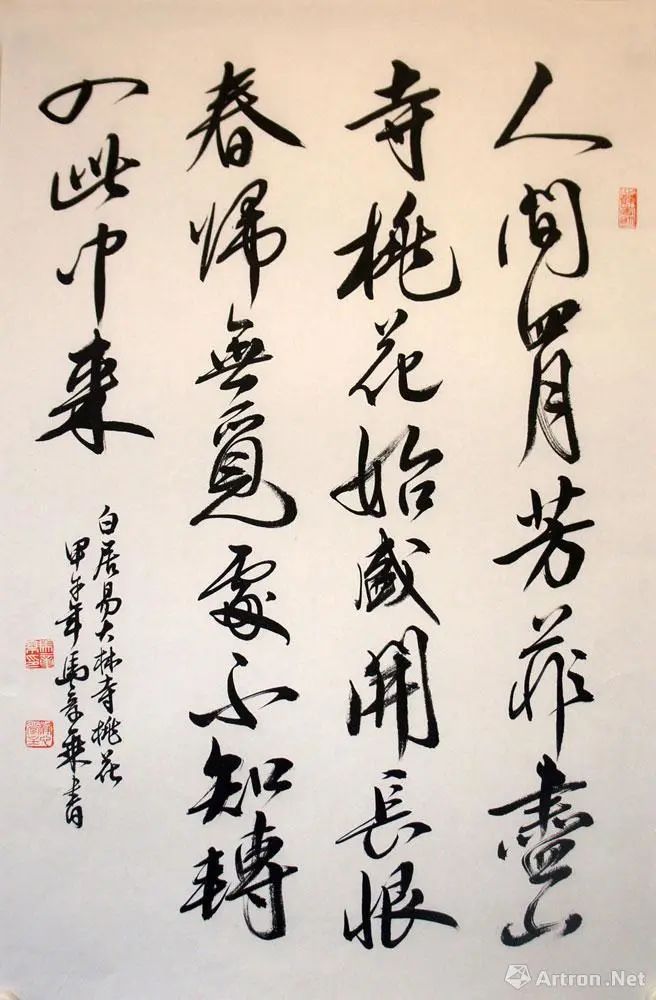 人間四月芳菲盡山
寺桃花始盛開長恨
春歸無覓處不知轉
入此中來
白居易大林寺桃花
甲午年馬章乘書
Artron.Net